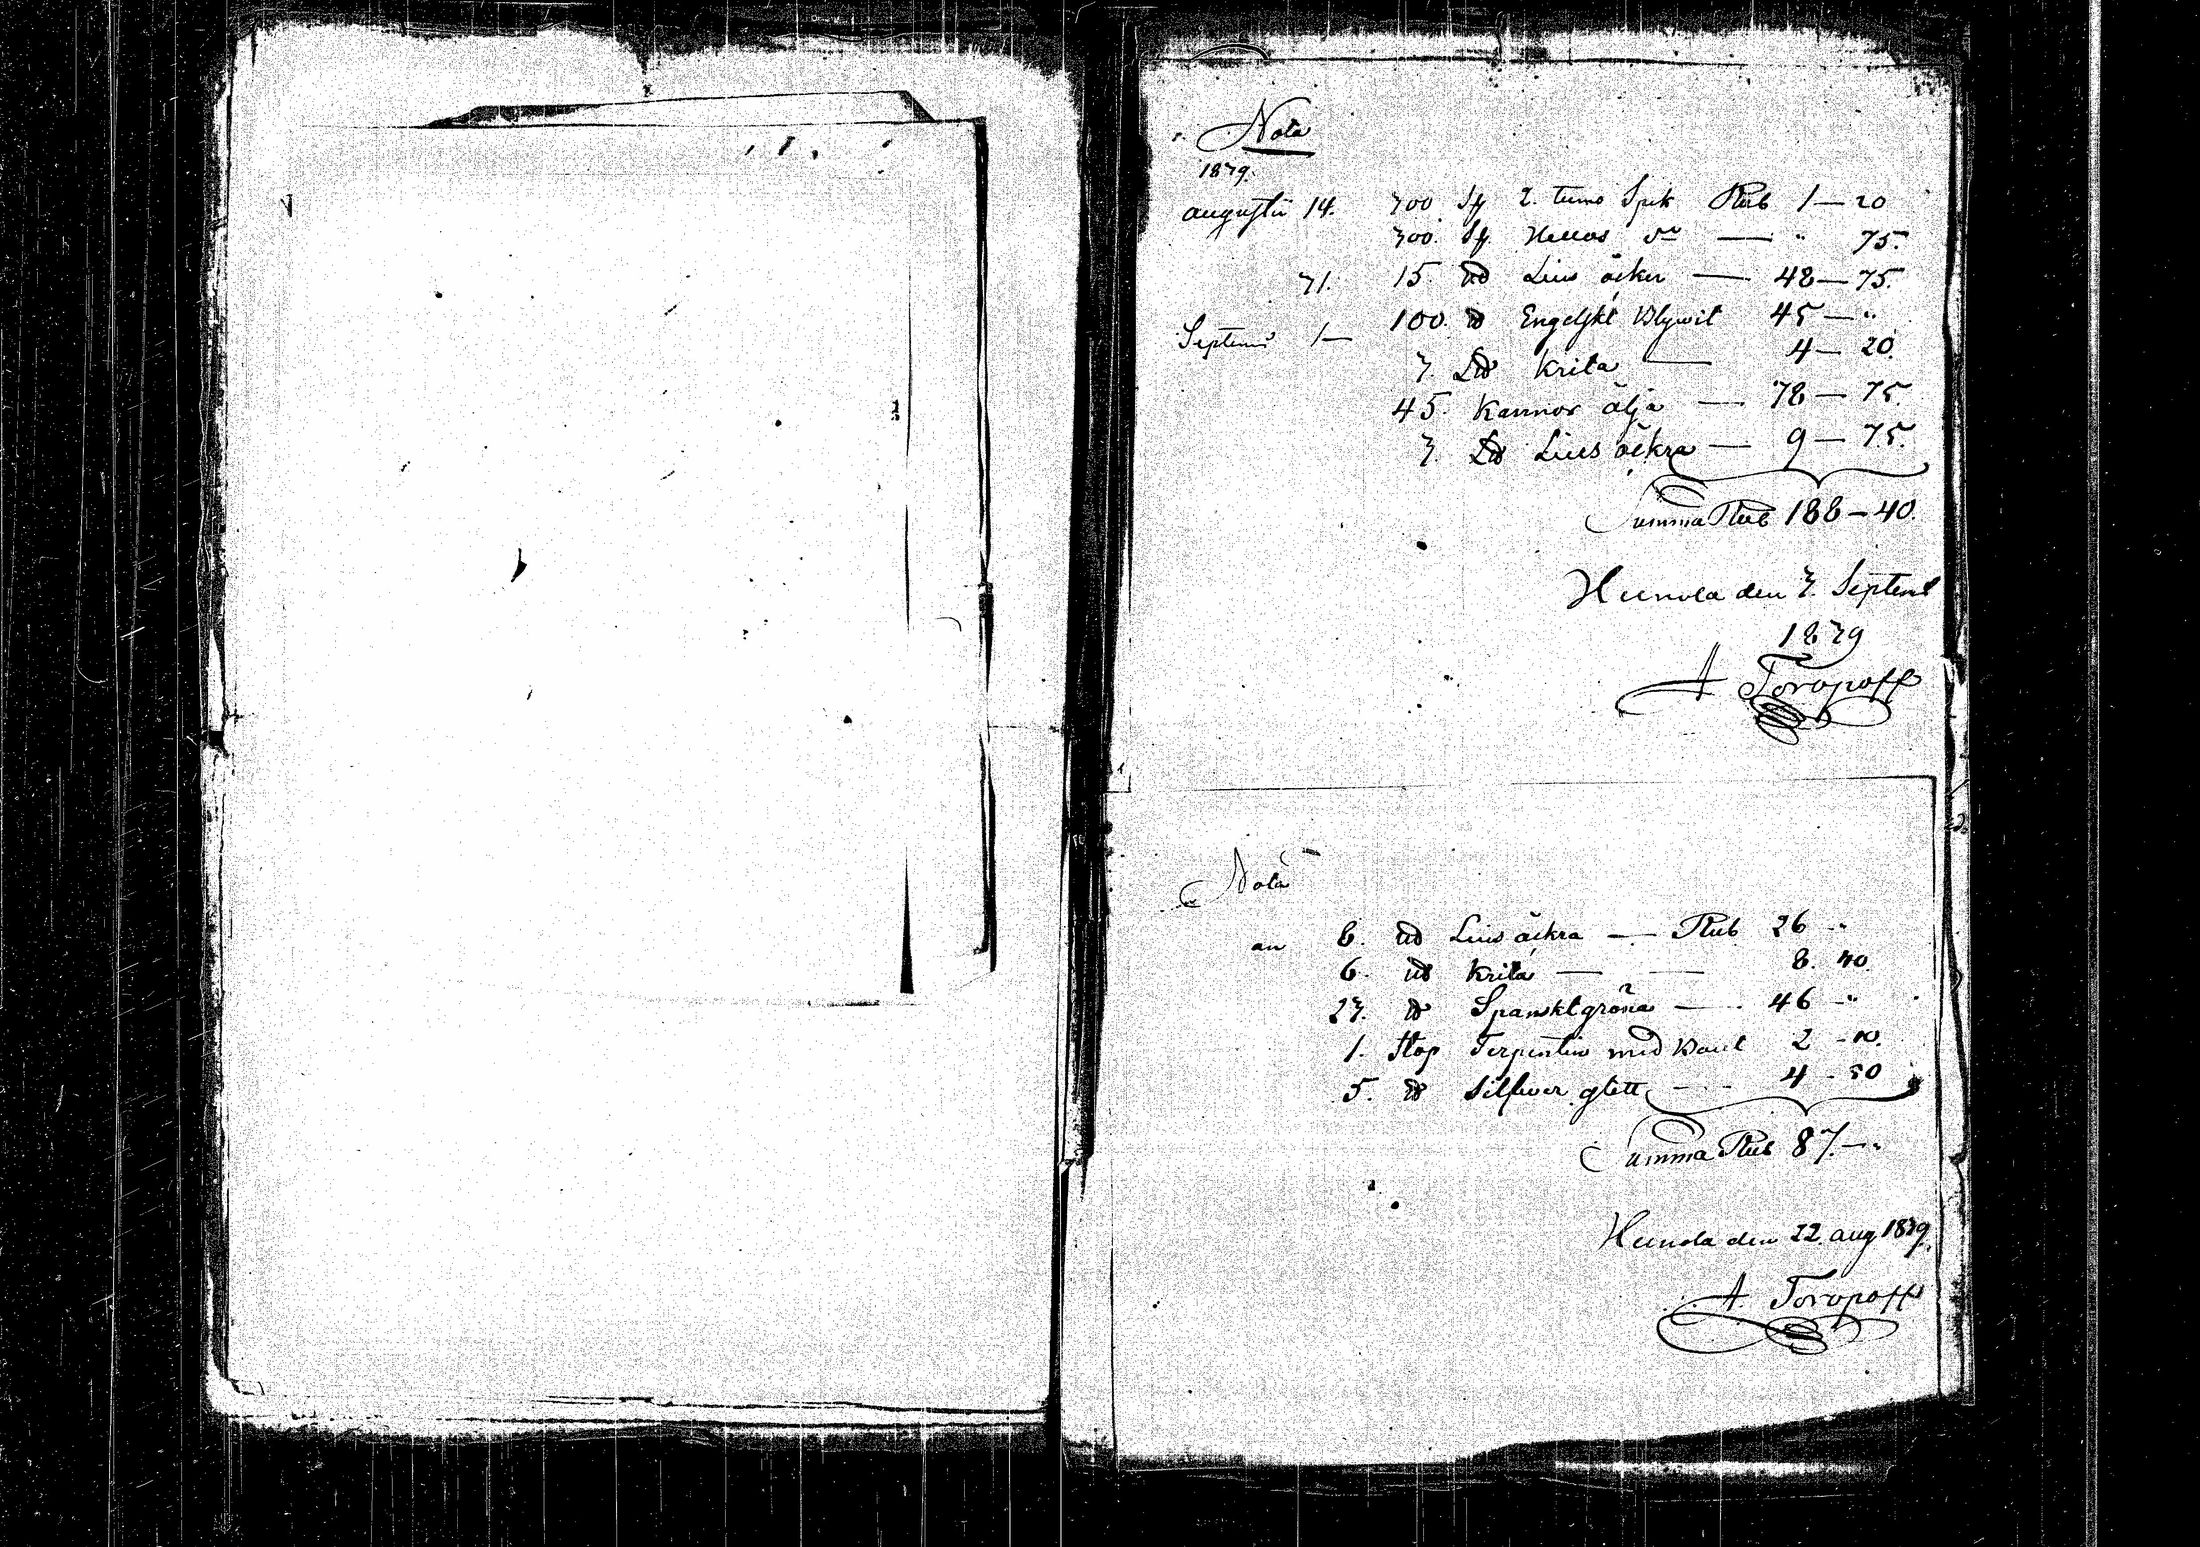 Nota
1839.
augusti 14. 300 St 2. tums Spik Rub 1—20
300. St. Hellas do — " 75.
31. 15. L℔ Lius öcker — 48—75.
100. ℔ Engelskt Blywit 45—"
Septem 1— 3. L℔ Krita — 4—20.
45. Kannor ålja — 78—75.
3. L℔ Lius öckra — 9—75.
Summa Rub 188—40.
Heinola den 3. Septemb
1839
A Toropoff
Nota
an 8. L℔ Lius öckra — Rub 26 "
6. L℔ Krita — 8. 40.
23. ℔ Spanskt gröna — 46 - "
1. Stop Terpentin med Boutl 2 - 10.
5. ℔ Silfwer glett — 4 - 50
Summa Rub 87.—"
Heinola den 22. aug 1839.
A. Toropoff